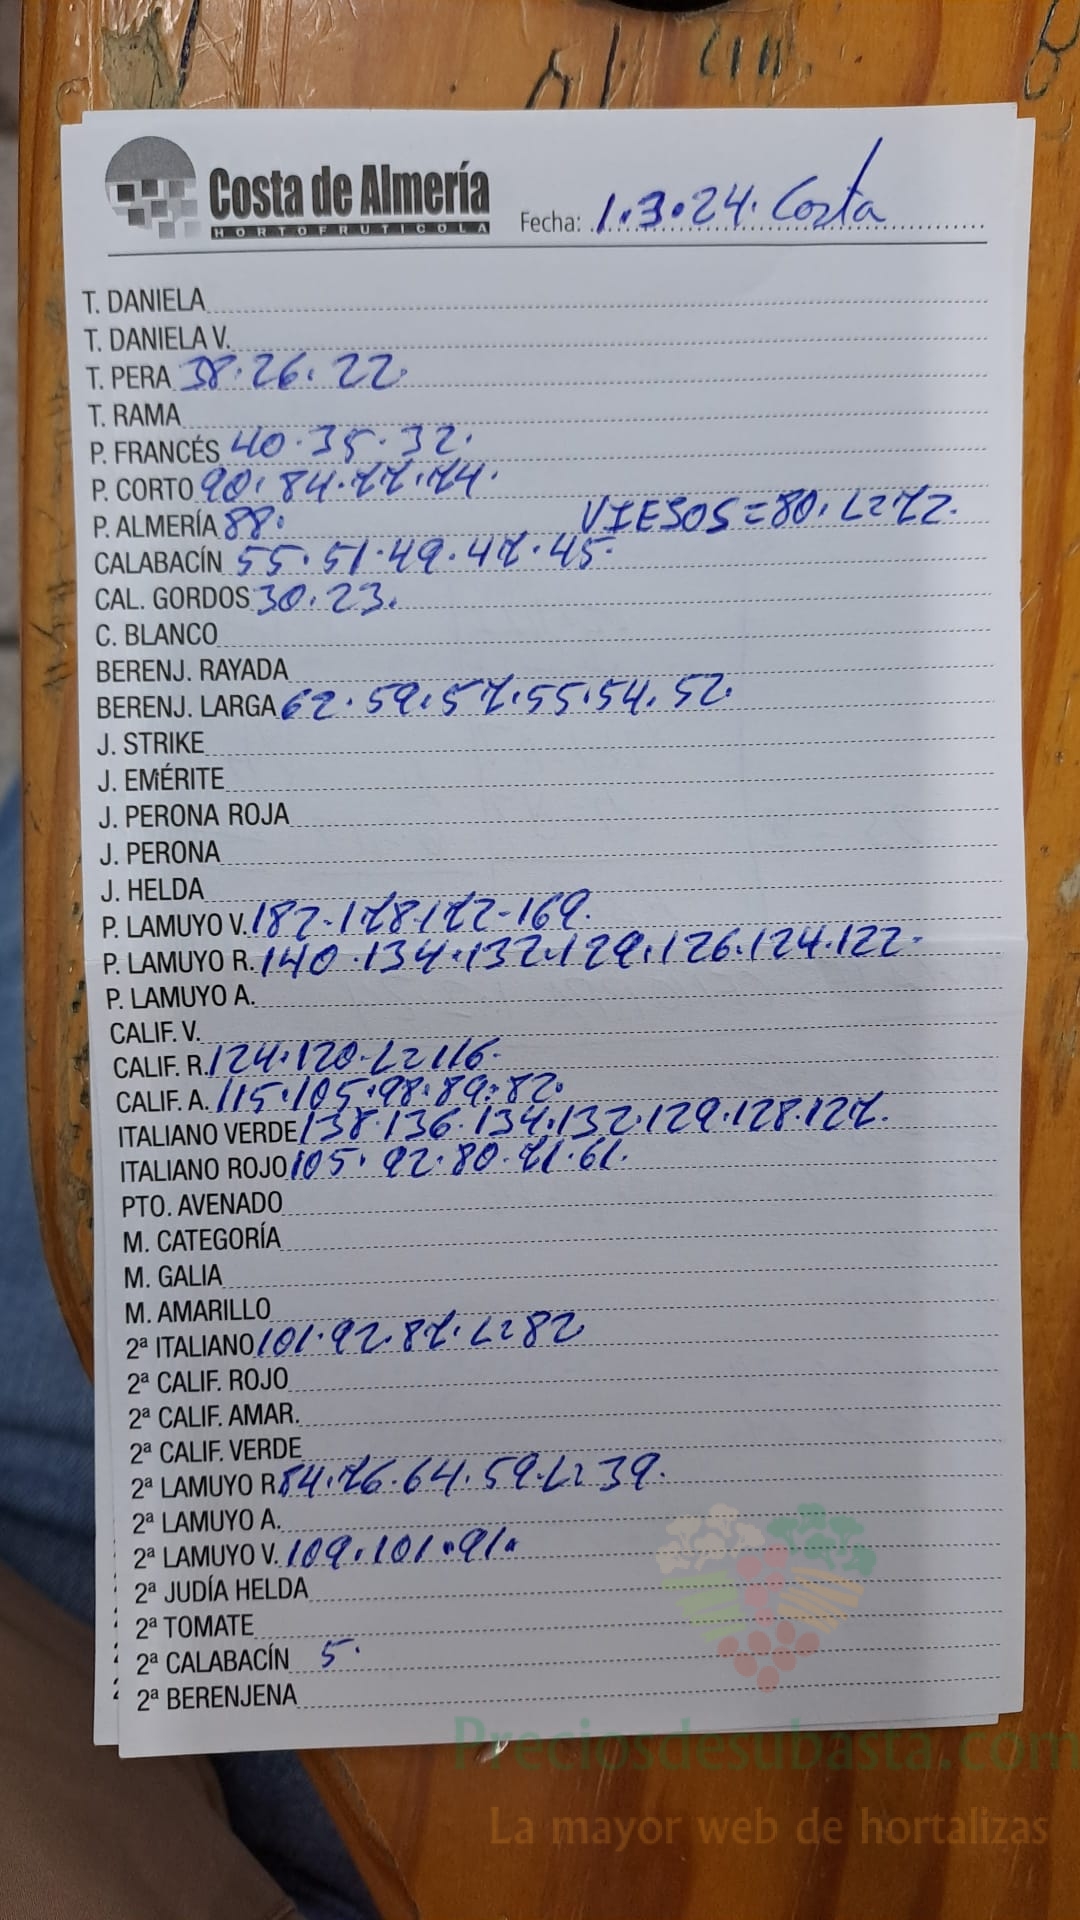 Costa de Almería
HORTOFRUTICOLA
Fecha: 1.3.24. Costa
T. DANIELA
T. DANIELA V.
T. PERA 38.26.22.
T. RAMA
P. FRANCÉS 40.35.32.
P. CORTO 90.84.77.74.
P. ALMERÍA 88. VIESOS=80.L=72.
CALABACÍN 55.51.49.47.45.
CAL. GORDOS 30.23.
C. BLANCO
BERENJ. RAYADA
BERENJ. LARGA 62.59.57.55.54.52.
J. STRIKE
J. EMÉRITE
J. PERONA ROJA
J. PERONA
J. HELDA
P. LAMUYO V. 182-178-172-169.
P. LAMUYO R. 140.134.132.129.126.124.122.
P. LAMUYO A.
CALIF. V.
CALIF. R. 124.120.L=116.
CALIF. A. 115.105.98.89.82.
ITALIANO VERDE 138.136.134.132.129.128.127.
ITALIANO ROJO 105.92.80.71.61.
PTO. AVENADO
M. CATEGORÍA
M. GALIA
M. AMARILLO
2ª ITALIANO 101.92.87.L=82
2ª CALIF. ROJO
2ª CALIF. AMAR.
2ª CALIF. VERDE
2ª LAMUYO R. 84.76.64.59.L=39.
2ª LAMUYO A.
2ª LAMUYO V. 109.101.91.
2ª JUDÍA HELDA
2ª TOMATE
2ª CALABACÍN 5.
2ª BERENJENA
Preciosdesubasta.com
La mayor web de hortalizas